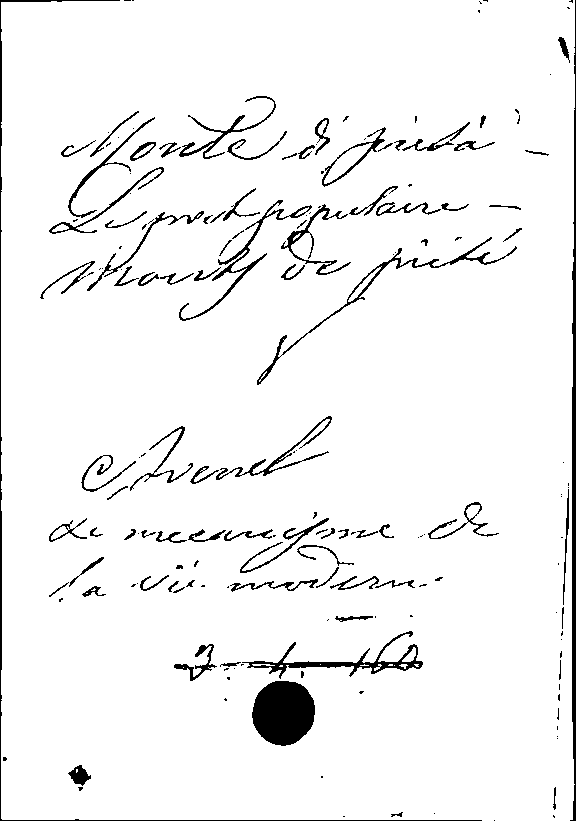 Monte di pietà -
Le pret populaire -
Monts de piété
V
Avenel
Le mecanisme de
la vie moderne
3. 4. 160